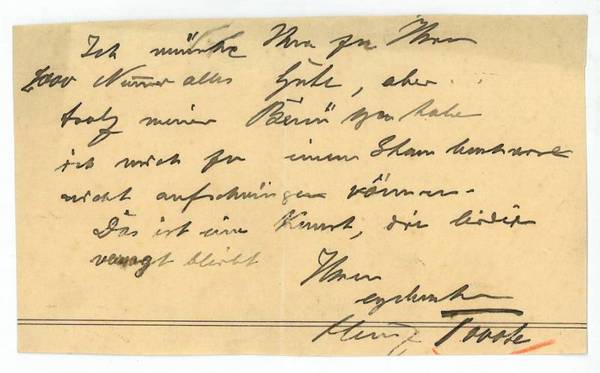 Ich wünsche Ihnen zu Ihrer
2000 Nummer alles Gute, aber
trotz meiner Bemühungen habe
ich mich zu einem
nicht aufschwingen können.
Das ist eine Kunst, die leider
versagt bleibt
Ihnen
ergebenster
Heinz Tovote